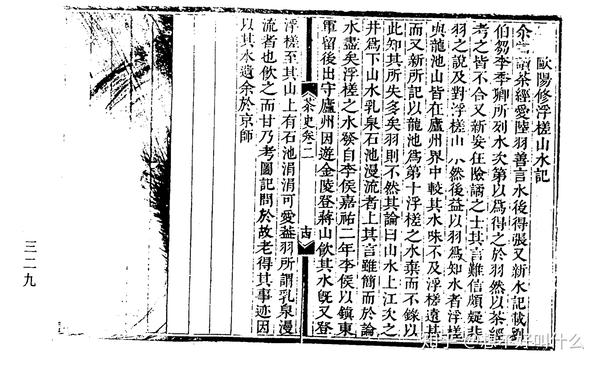 歐陽修浮槎山水記
余讀茶經愛陸羽善言水後得張又新水記載劉
伯芻李季卿所列水次第以爲得之於羽然以茶經
考之皆不合又新妄狂險譎之士其言難信頗疑非
羽之說及對浮槎山水然後益以羽爲知水者浮槎
與龍池山皆在廬州界中較其水味不及浮槎遠甚
而又新所記以龍池爲第十浮槎之水棄而不錄以
此知其所失多矣羽則不然其論曰山水上江次之
井爲下山水乳泉石池漫流者上其言雖簡而於論
茶史卷二
水盡矣浮槎之水發自李侯嘉祐二年李侯以鎮東
軍留後出守廬州因遊金陵登蔣山飲其水旣又登
浮槎至其山上有石池涓涓可愛葢羽所謂乳泉漫
流者也飲之而甘乃考圖記問於故老得其事迹因
以其水遺余於京師
三二九
知乎 @好叫什么